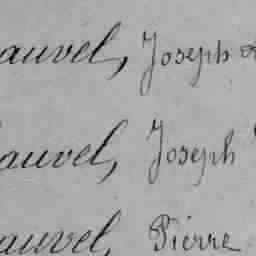 auvel, Joseph
auvel, Joseph
auvel, Pierre